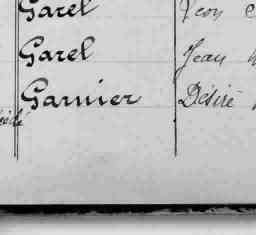 Garel Léon
Garel Jean
Garnier Désiré